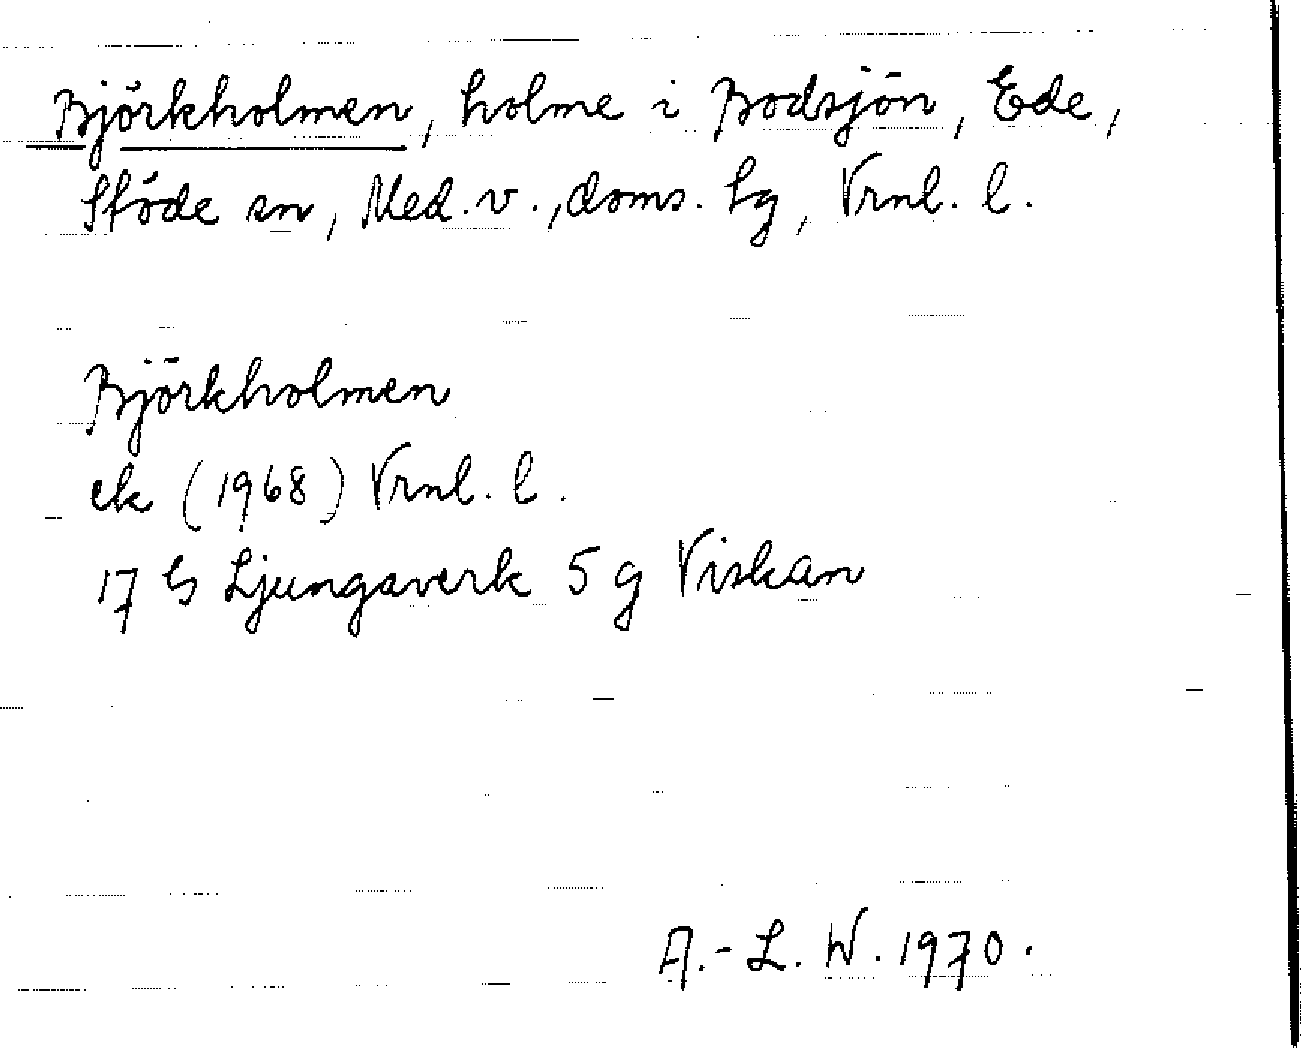 Björkholmen, holme i Bodsjön, Ede,
Stöde sn, Med. v., doms. hg, Vrnl. l.
Björkholmen
ek (1968) Vrnl. l.
17 G Ljungaverk 5 g Viskan
A.-L. W. 1970.